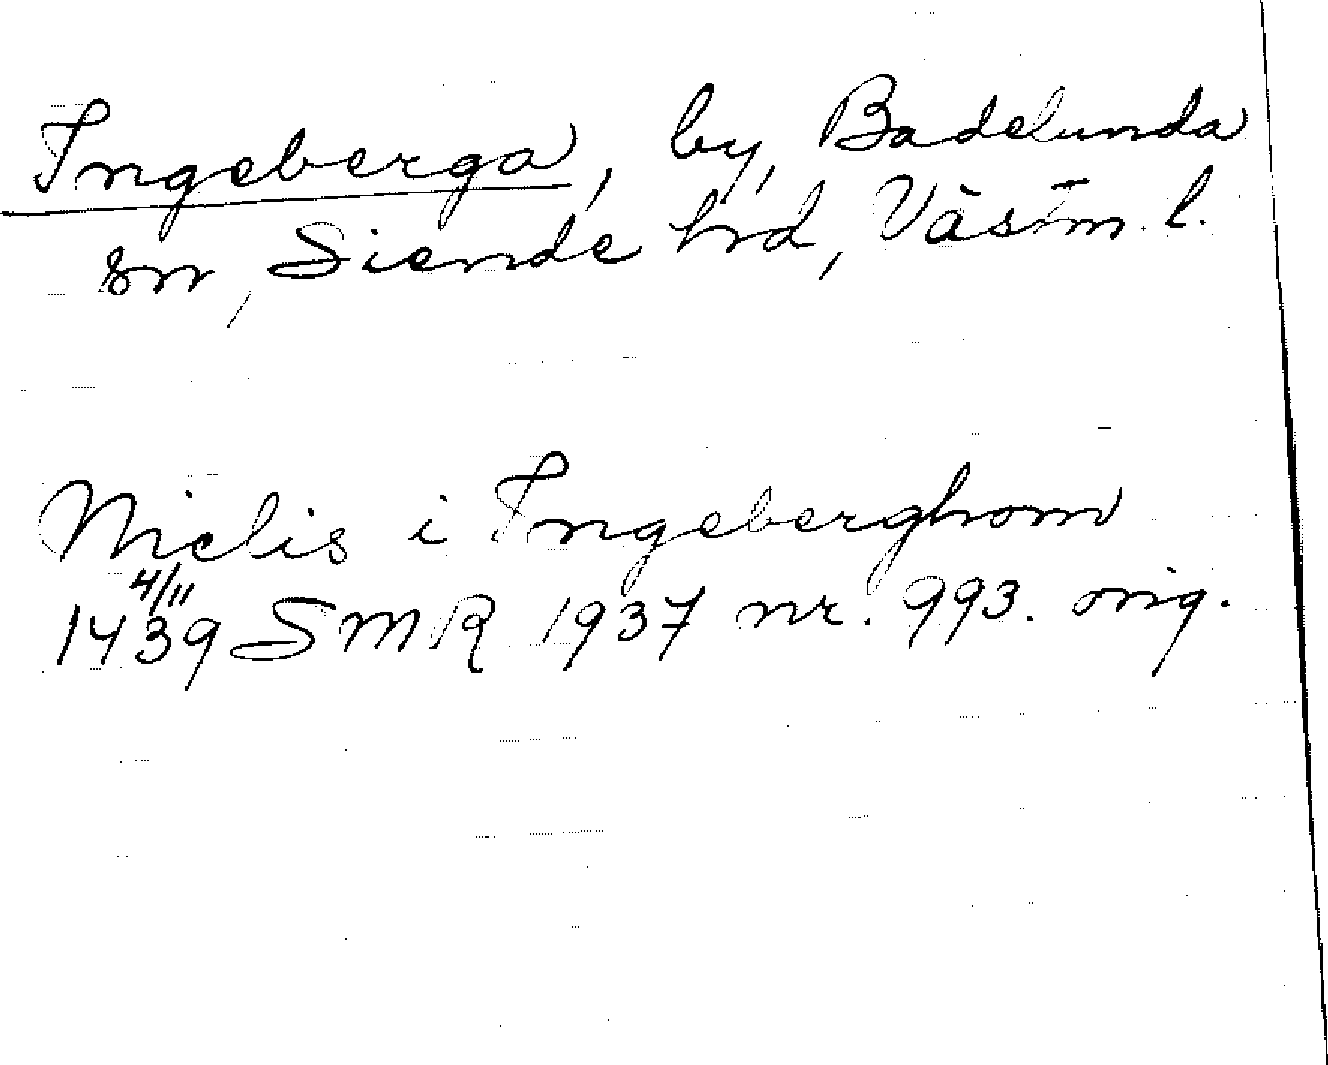 Ingeberga, by, Badelunda
sn, Siende hrd, Västm. l.
Niclis i Ingeberghom
1439 4/11 SMR 1937 nr. 993. orig.